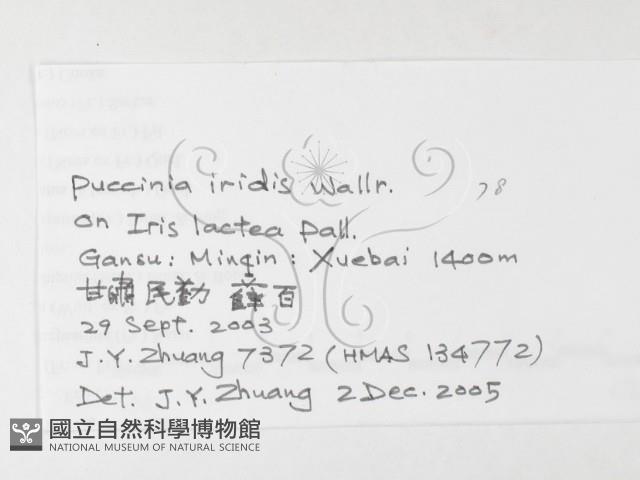 Puccinia iridis Wallr. 78
on Iris lactea Pall.
Gansu: Minqin: Xuebai 1400m
甘肅 民勤 薛百
29 Sept. 2003
J.Y. Zhuang 7372 (HMAS 134772)
Det. J.Y. Zhuang 2 Dec. 2005
國立自然科學博物館
NATIONAL MUSEUM OF NATURAL SCIENCE